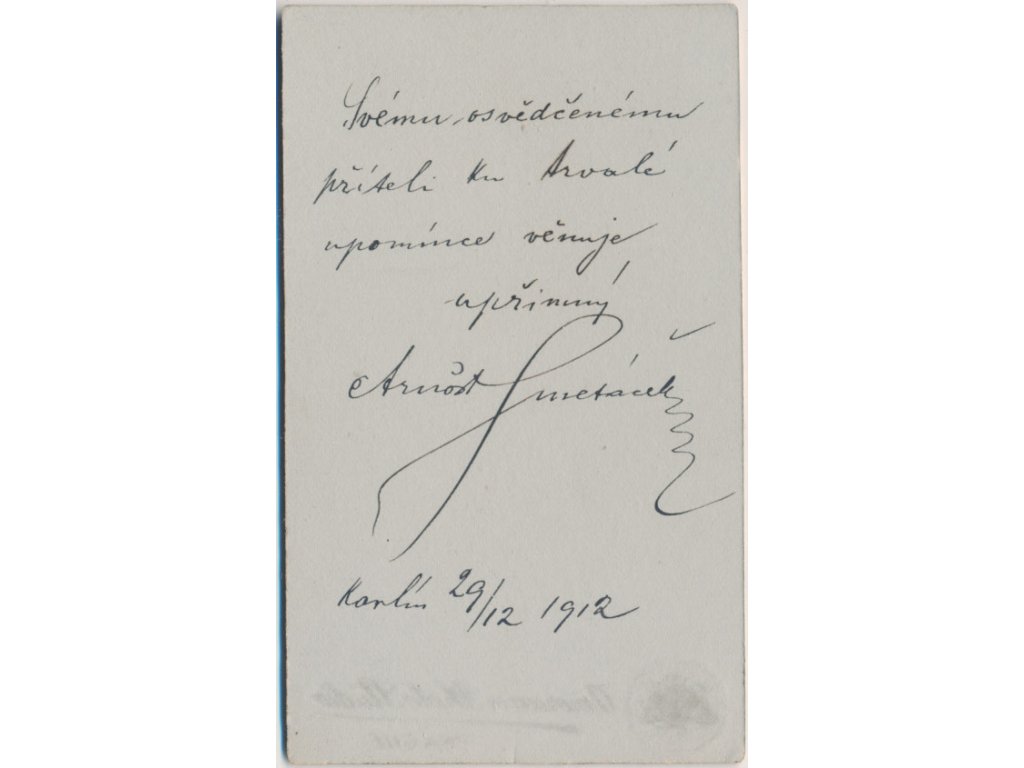 Svému osvědčenému
příteli ku trvalé
upomínce věnuje
upřímný
Arnošt Smetáček
Karlín 29/12 1912